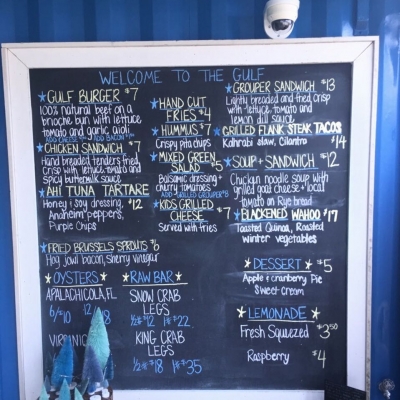 WELCOME TO THE GULF
GULF BURGER $7
100% natural beef on a
brioche bun with lettuce
tomato and garlic aioli
ADD CHEESE $1 ADD BACON $1
CHICKEN SANDWICH $7
Hand breaded tenders fried
crisp with lettuce, tomato and
spicy buttermilk sauce
AHI TUNA TARTARE
Honey + soy dressing, $12
Anaheim peppers,
Purple Chips
FRIED BRUSSELS SPROUTS $6
Hog jowl bacon, sherry vinegar
OYSTERS
APALACHICOLA, FL
6/$10 12/$18
VIRGINIA
HAND CUT
FRIES $4
HUMMUS $7
Crispy pita chips
MIXED GREEN
SALAD $5
Balsamic dressing +
cherry tomatoes
ADD GRILLED GROUPER $8
KIDS GRILLED
CHEESE $7
Served with fries
RAW BAR
SNOW CRAB
LEGS
1/2# $12 1# $22
KING CRAB
LEGS
1/2# $18 1# $35
GROUPER SANDWICH $13
Lightly breaded and fried crisp
with lettuce, tomato and
lemon dill sauce
GRILLED FLANK STEAK TACOS
Kohlrabi slaw, Cilantro $14
SOUP + SANDWICH $12
Chicken noodle soup with
grilled goat cheese + local
tomato on Rye bread
BLACKENED WAHOO $17
Toasted Quinoa, Roasted
winter vegetables
DESSERT $5
Apple + cranberry Pie
Sweet Cream
LEMONADE
Fresh Squeezed $3.50
Raspberry $4